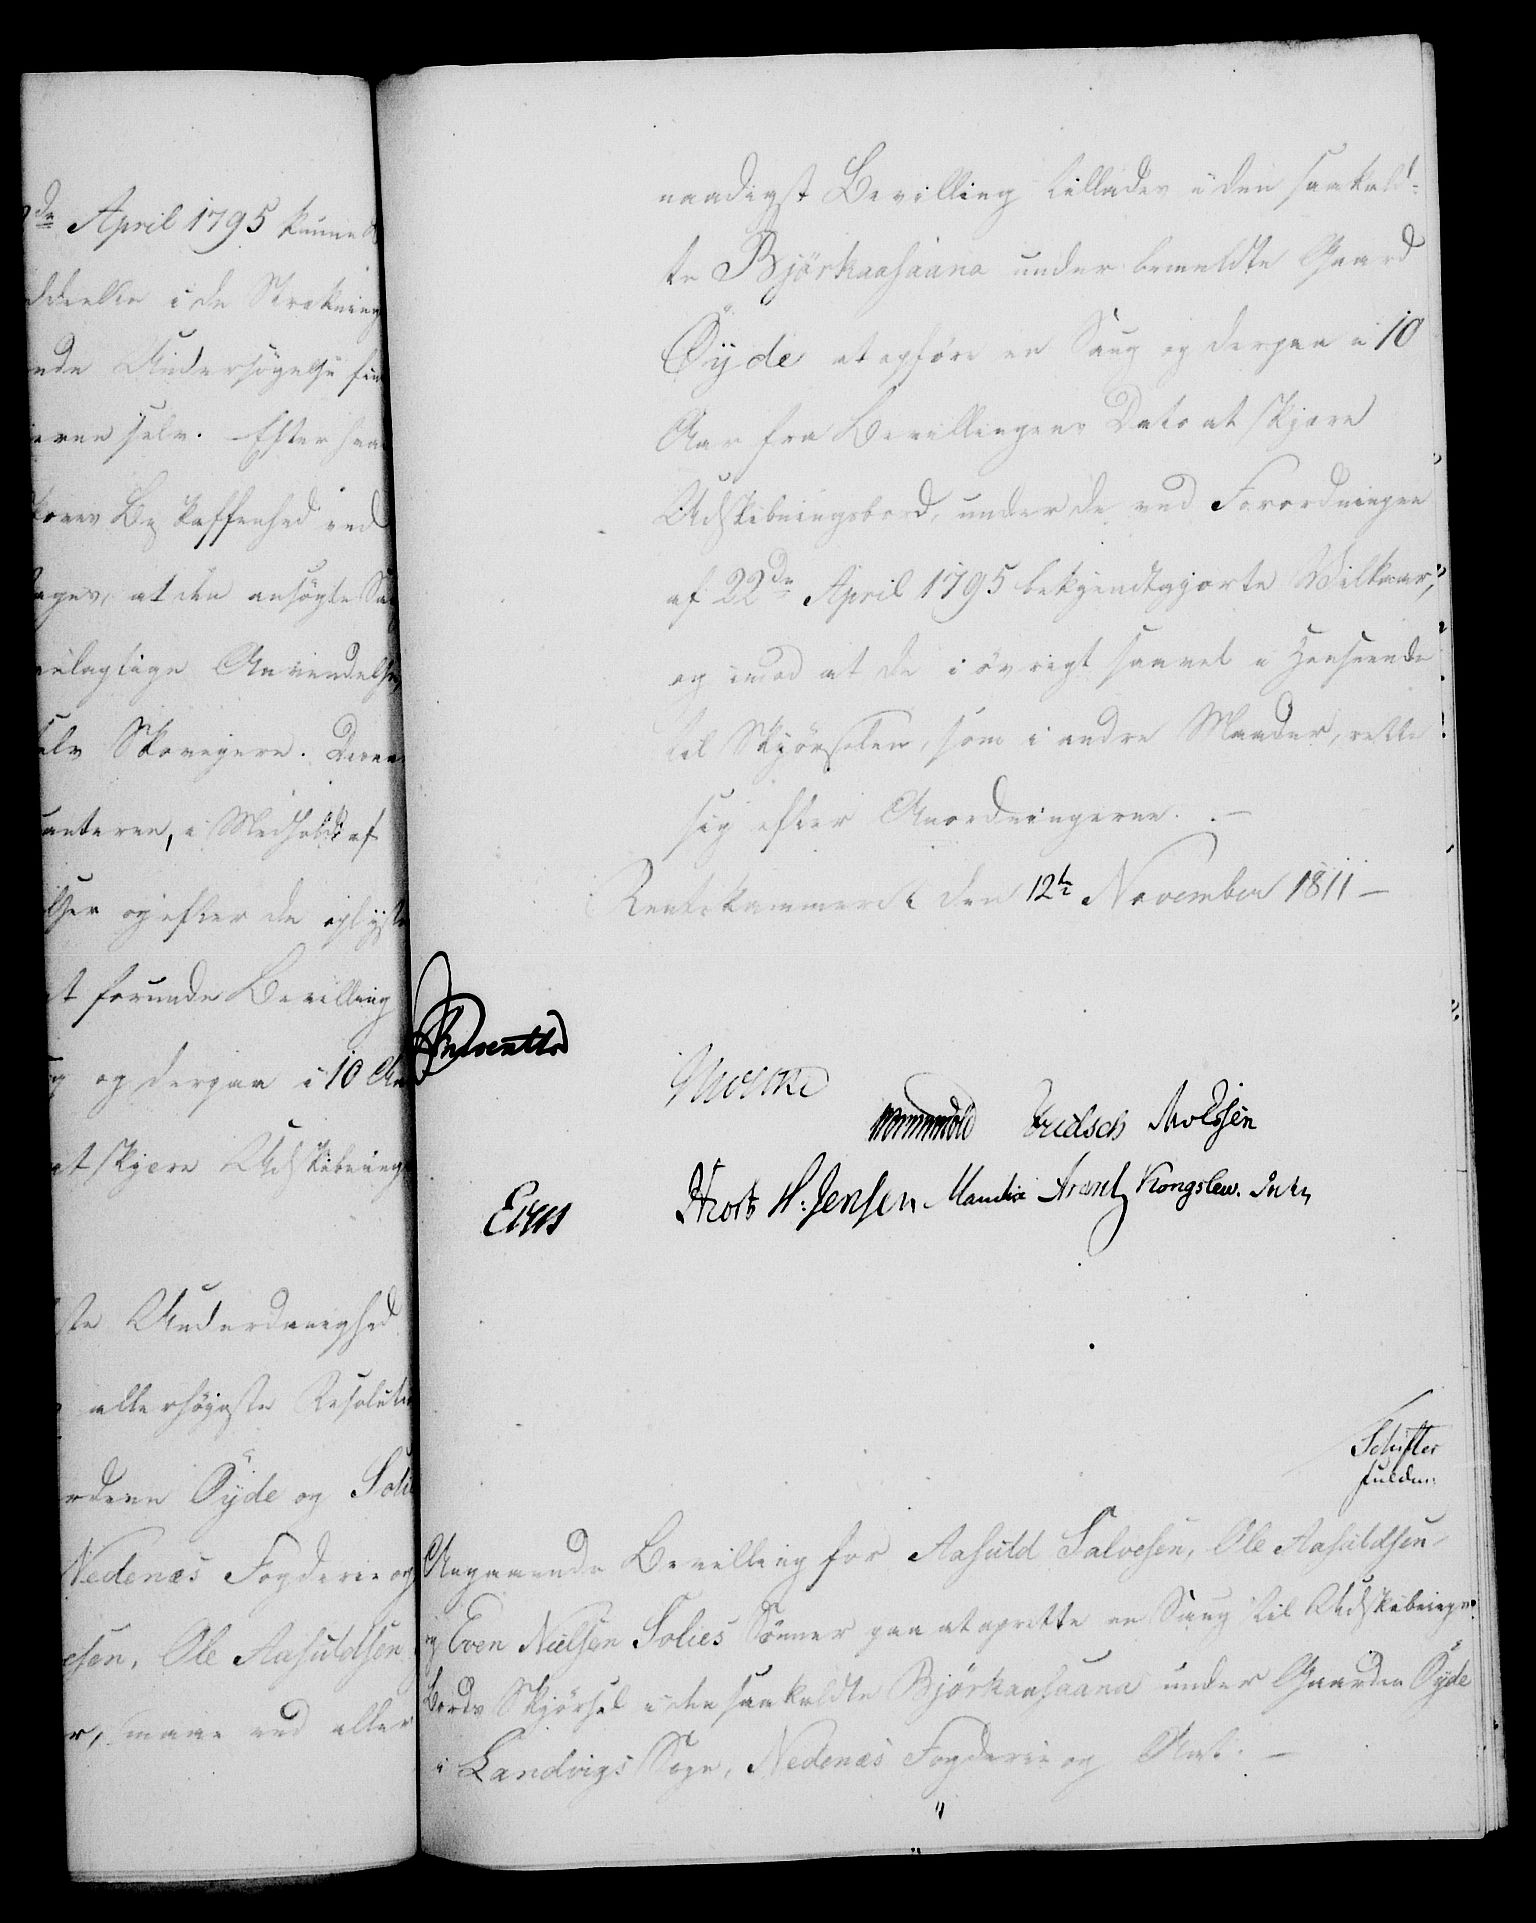 de April 1795 kunne
ddeelse i de Strækning
ende Undersøgelse fin
erne selv. Efter saa
kovens Beskaffenhed ved
ages, at den ansøgte Sa
velagtige Anvendelse,
selv Skoveyere. Deres
anteren, i Medhold af
lser og efter de oplyst
t forunde Bevilling
og derpaa i 10 Aa
at skjære Udskibning
ste Underdanighed
allerhøyeste Resoluti
rdene Öÿde og Soli
Nedenæs Fogderie og
esen, Ole Aasuldsen
r, maae ved aller
naadigst Bevilling tillades i den saakald-
te Björkaasaana under bemeldte Gaard
Öÿde at opföre en Saug og derpaa i 10
Aar fra Bevillingens Dato at skjære
Udskibningsbord, under de ved Forordningen
af 22de April 1795 bekjendtgjorte Vilkaar,
og imod at de i övrigt saavel i Henseende
til Skjörselen, som i andre Maader, rette
sig efter Anordningerne. —
Rentekammeret den 12te November 1811 —
Moltke
Wormskiold Fridsch Moldsen
H. Jensen Manthe Arentz Kongslew.
Schifter
fuldm:
Angaaende Bevilling for Aasuld Salvesen, Ole Aasuldsen
og Even Nielsen Solies Sönner paa at oprette en Saug til Udskibnings
Bords Skjörsel i den saakaldte Björkaasaana under Gaarden Öÿde
i Landvigs Sogn, Nedenæs Fogderie og Amt. —